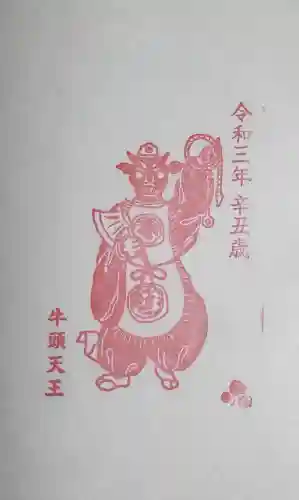 令和三年辛丑歳
牛頭天王